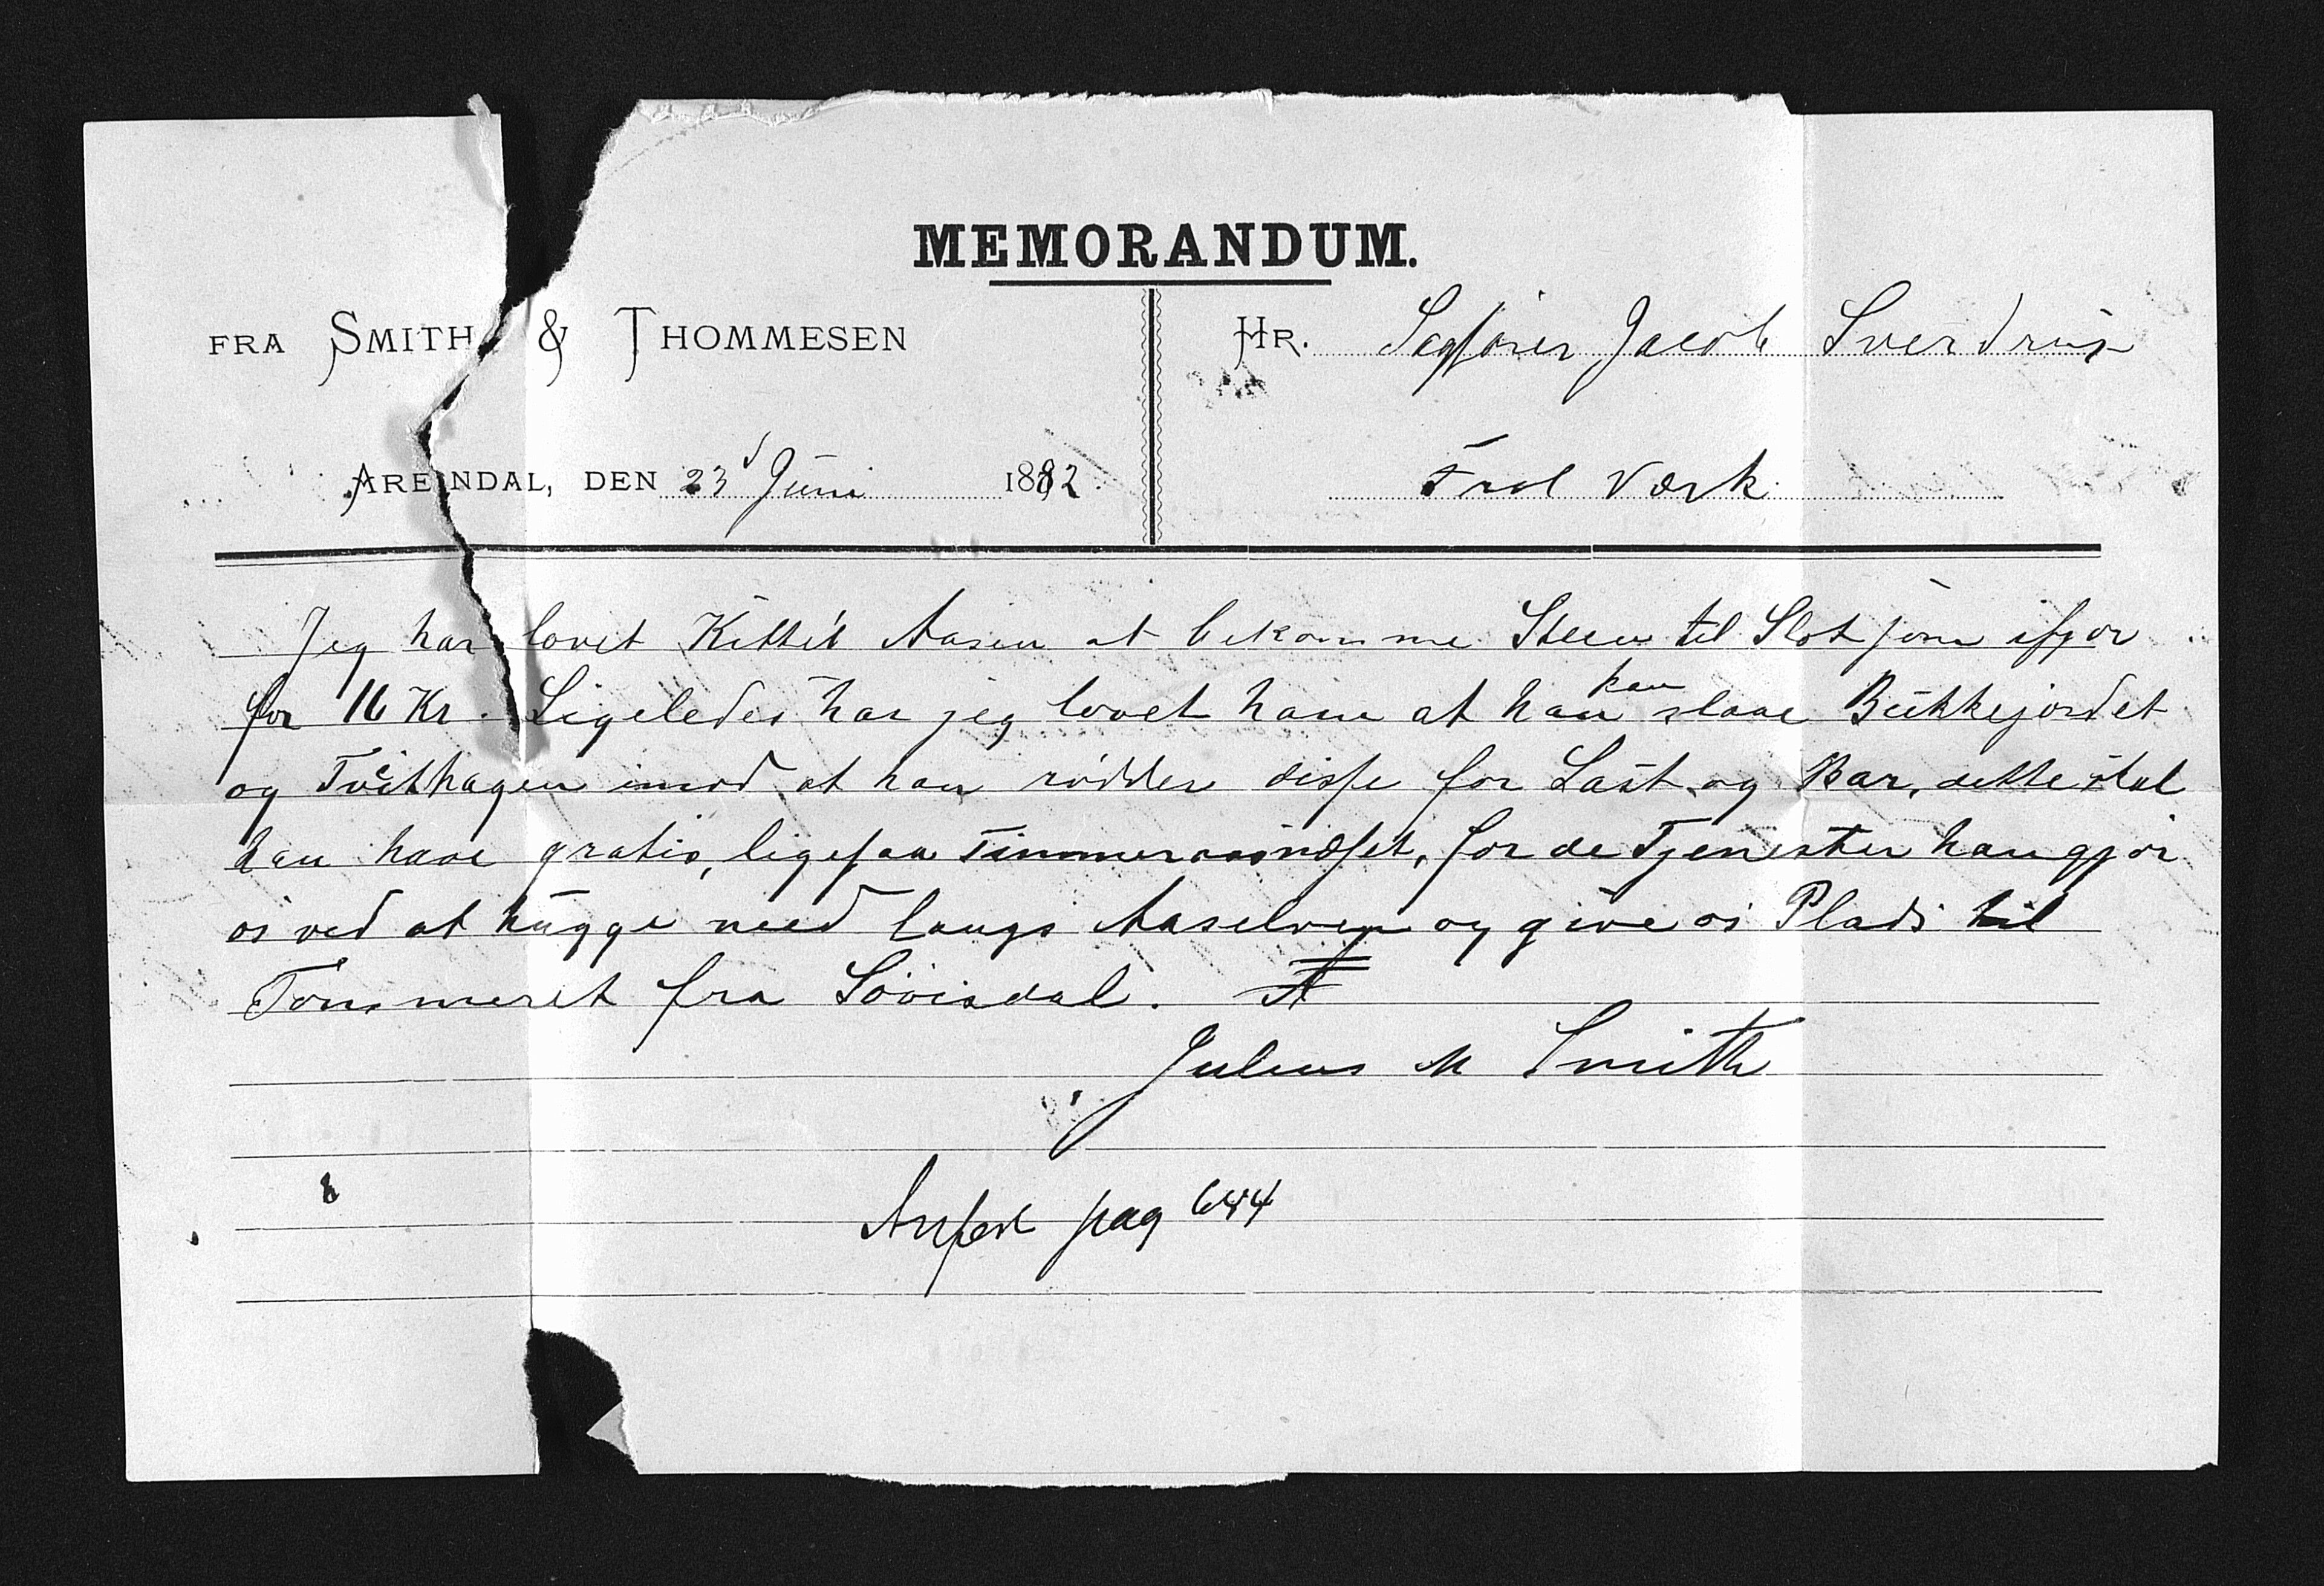 MEMORANDUM.
FRA SMITH & THOMMESEN
HR. Sagfører Jacob Sverdrup
ARENDAL, DEN 23d Juni 1882.
Frol Værk
Jeg har lovet Kittil Aasen at bekomme Steen til Slot
for 16 Kr. Ligeledes har jeg lovet ham at han kan slaae Bukkejordet
og Tveithagen imod at han rødder disse for Laüt og Bar, dette skal
han have gratis, ligesaa for de Tjenester han gjør
os ved at hugge need langs Aaselven og give os Plads til
Tømmeret fra Løvisdal.
Julius M Smith
Anført pag 644